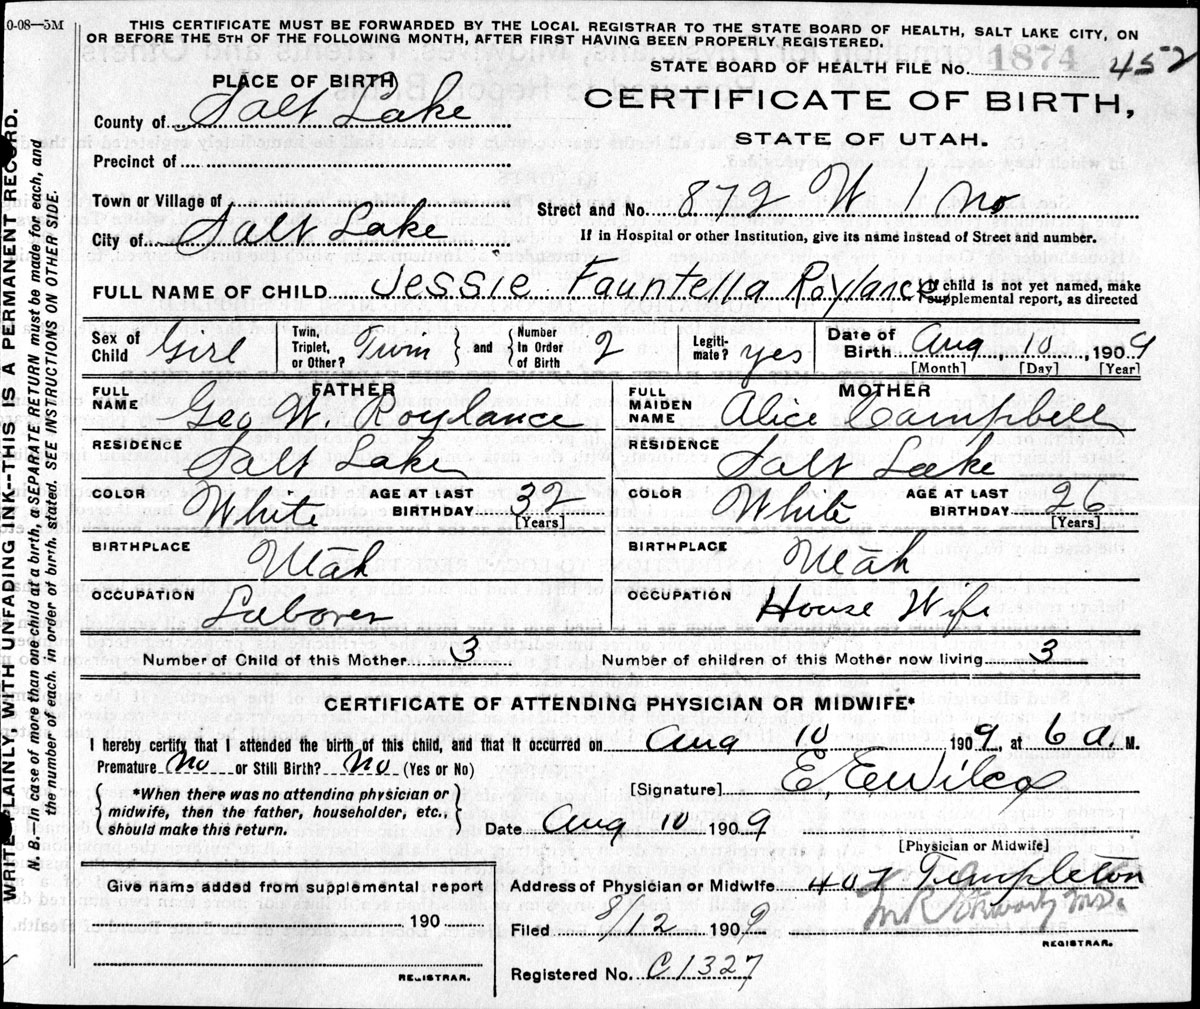 0-08—3M
THIS CERTIFICATE MUST BE FORWARDED BY THE LOCAL REGISTRAR TO THE STATE BOARD OF HEALTH, SALT LAKE CITY, ON
OR BEFORE THE 5TH OF THE FOLLOWING MONTH, AFTER FIRST HAVING BEEN PROPERLY REGISTERED.
STATE BOARD OF HEALTH FILE No. 1874 452
PLACE OF BIRTH
CERTIFICATE OF BIRTH,
STATE OF UTAH.
County of Salt Lake
Precinct of
Town or Village of
Street and No. 872 W 1 No
City of Salt Lake
If in Hospital or other Institution, give its name instead of Street and number.
FULL NAME OF CHILD Jessie Fauntella Roylance
If child is not yet named, make
supplemental report, as directed
Sex of Child Girl
Twin, Triplet, or Other? Twin and Number In Order of Birth 2
Legiti- mate? yes
Date of Birth Aug, 10, 1909
[Month] [Day] [Year]
FATHER
FULL NAME Geo W. Roylance
MOTHER
FULL MAIDEN NAME Alice Campbell
RESIDENCE Salt Lake
RESIDENCE Salt Lake
COLOR White AGE AT LAST BIRTHDAY 32 [Years]
COLOR White AGE AT LAST BIRTHDAY 26 [Years]
BIRTHPLACE Utah
BIRTHPLACE Utah
OCCUPATION Laborer
OCCUPATION House Wife
Number of Child of this Mother 3 Number of children of this Mother now living 3
CERTIFICATE OF ATTENDING PHYSICIAN OR MIDWIFE*
I hereby certify that I attended the birth of this child, and that it occurred on Aug 10 1909, at 6 a. M.
Premature No or Still Birth? No (Yes or No)
[Signature] E. E. Wilcox
*When there was no attending physician or
midwife, then the father, householder, etc.,
should make this return.
Date Aug 10 1909
[Physician or Midwife]
Give name added from supplemental report
190
REGISTRAR.
Address of Physician or Midwife 407 Templeton
Filed 8/12 1909
M.D.
REGISTRAR.
Registered No. C1327
WRITE PLAINLY, WITH UNFADING INK--THIS IS A PERMANENT RECORD.
N. B.—In case of more than one child at a birth, a SEPARATE RETURN must be made for each, and
the number of each, in order of birth, stated. SEE INSTRUCTIONS ON OTHER SIDE.